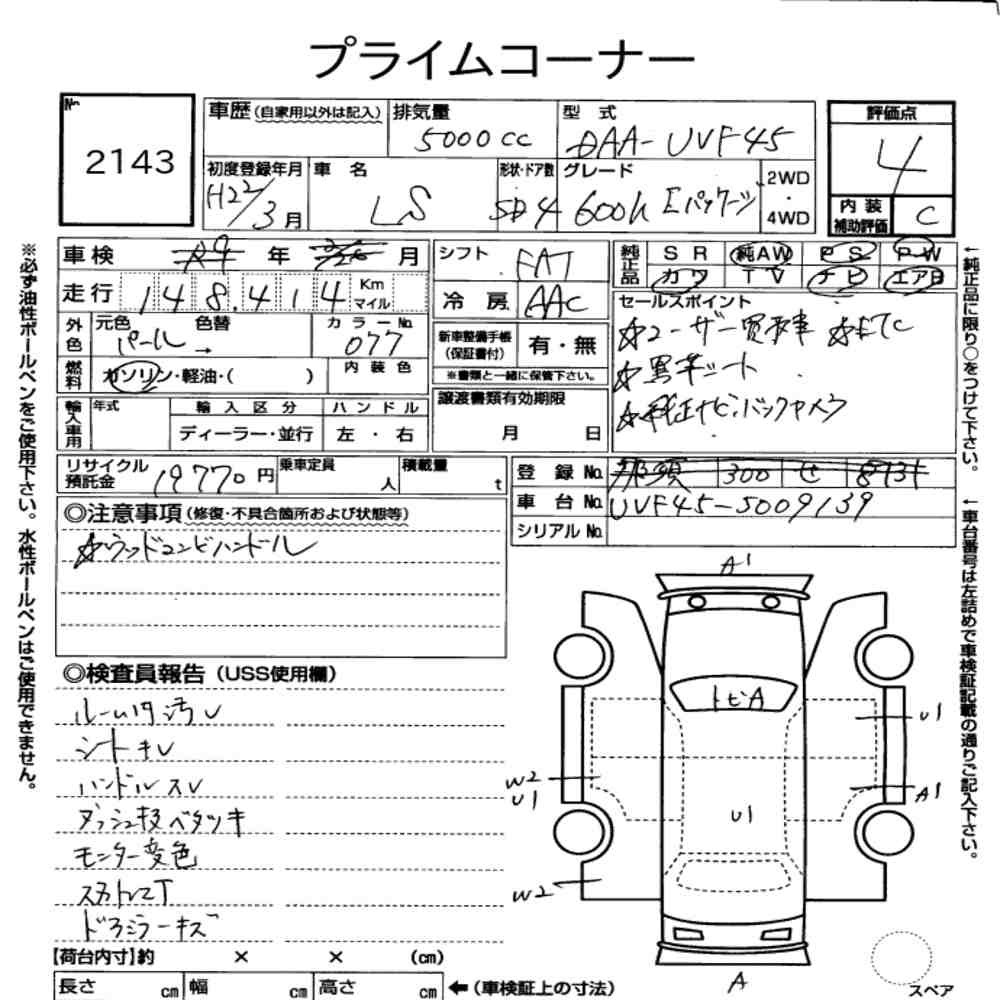 プライムコーナー
No.
2143
車歴(自家用以外は記入)
排気量
5000cc
型 式
DAA-UVF45
評価点
4
初度登録年月
H22/3月
車 名
LS
形状・ドア数
SD4
グレード
600h Eパッケージ
2WD
・
4WD
内装
補助評価
C
車検 年 月
シフト
FAT
純正品
SR 純AW PS PW
カワ TV ナビ エアB
走行
148,414
Km
マイル
冷 房
AAC
セールスポイント
☆ユーザー買取車 ☆ETC
☆黒革シート
☆純正ナビ、バックカメラ
外色
元色 色替
パール →
カラーNo.
077
新車整備手帳
(保証書付)
有・無
※書類と一緒に保管下さい。
燃料
ガソリン・軽油・( )
内装色
輸入車用
年式
輸入区分
ディーラー・並行
ハンドル
左・右
譲渡書類有効期限
月 日
リサイクル
預託金
19770円
乗車定員
人
積載量
t
登録No.
那須 300 せ
車台No.
UVF45-5009139
シリアルNo.
◎注意事項(修復・不具合箇所および状態等)
☆ウッドコンビハンドル
◎検査員報告(USS使用欄)
ルーム内汚レ
シートキレ
ハンドルスレ
ダッシュ板ベタツキ
モニター変色
スカトレマT
ドアミラーキズ
A1
トビA
U1
W2
U1
A1
U1
W2
A
スペア
【荷台内寸】約 × × (cm)
長さ cm 幅 cm 高さ cm
←(車検証上の寸法)
※必ず油性ボールペンをご使用下さい。水性ボールペンはご使用できません。
←純正品に限り○をつけて下さい。
←車台番号は左詰めで車検証記載の通りご記入下さい。